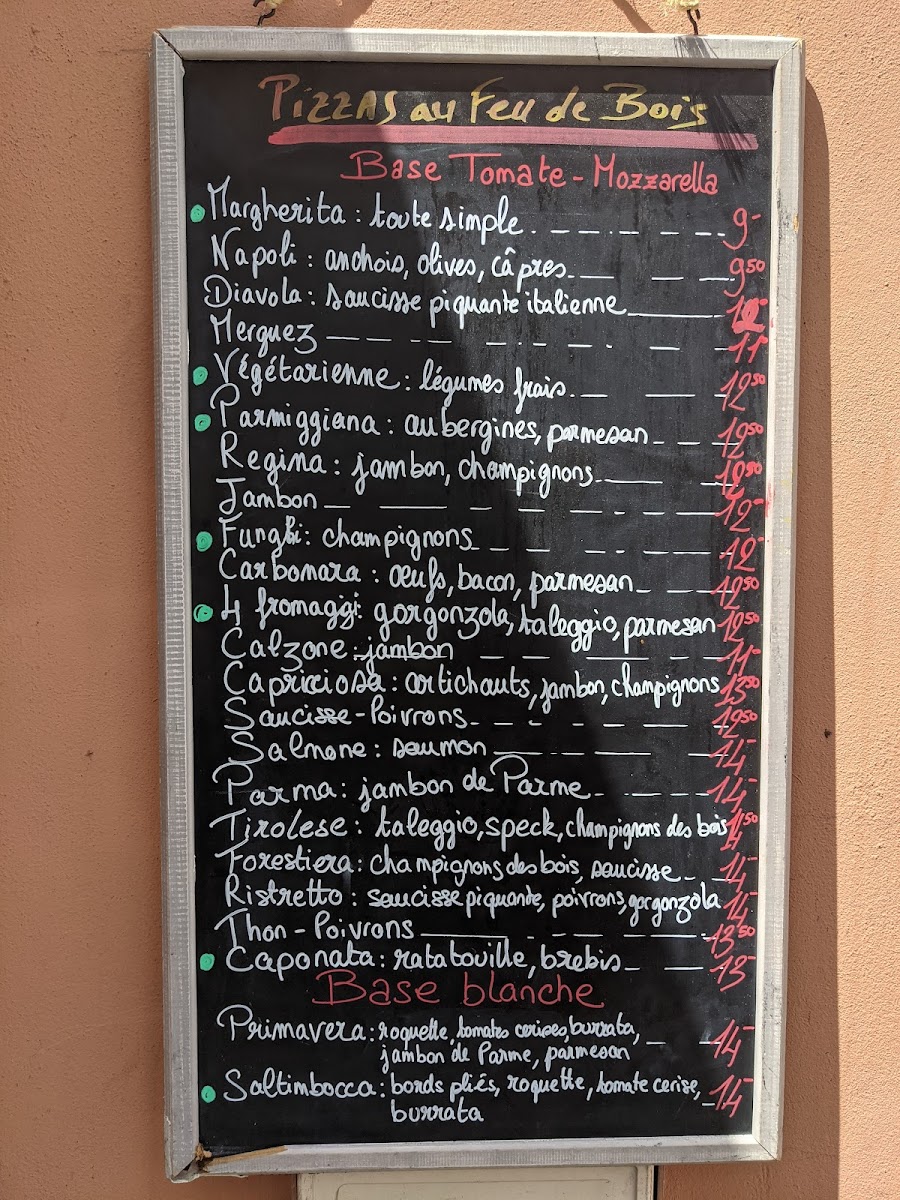 Pizzas au Feu de Bois
Base Tomate - Mozzarella
Margherita : toute simple 9-
Napoli : anchois, olives, câpres 9 50
Diavola : saucisse piquante italienne 12-
Merguez 11-
Végétarienne : légumes frais 12 50
Parmiggiana : aubergines, parmesan 12 50
Regina : jambon, champignons 12 50
Jambon 12-
Funghi : champignons 12-
Carbonara : œufs, bacon, parmesan 12 50
4 fromaggi : gorgonzola, taleggio, parmesan 12 50
Calzone : jambon 11-
Capricciosa : artichauts, jambon, champignons 13 50
Saucisse-Poivrons 12 50
Salmone : saumon 14-
Parma : jambon de Parme 14-
Tirolese : taleggio, speck, champignons des bois 14 50
Forestiera : champignons des bois, saucisse 14-
Ristretto : saucisse piquante, poivrons, gorgonzola 14-
Thon - Poivrons 13 50
Caponata : ratatouille, brebis 13-
Base blanche
Primavera : roquette, tomates cerises, burrata, 14-
jambon de Parme, parmesan
Saltimbocca : bords pliés, roquette, tomate cerise, 14-
burrata